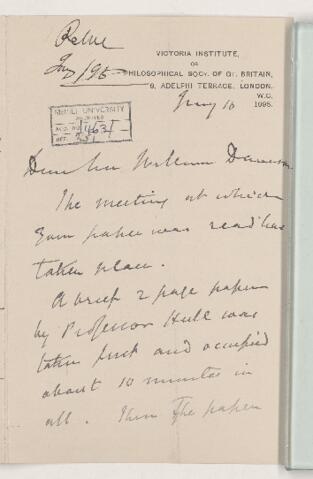 VICTORIA INSTITUTE,
OR
PHILOSOPHICAL SOCY. OF GT. BRITAIN,
9, ADELPHI TERRACE, LONDON,
W.C.
10
1895.
McGILL UNIVERSITY
ACC. NO. 1463
Dear Sir William Dawson
The meeting at which
your paper was read has
taken place.
A brief 2 page paper
by Professor Hull was
taken first and occupied
about 10 minutes in
all. Then the paper